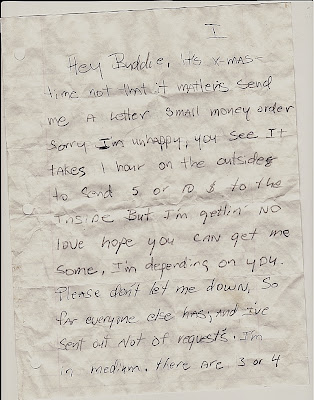 I
Hey Buddie, it's X-MAS-
time not that it matters send
me A Letter small money order
sorry I'm unhappy, you see It
takes 1 hour on the outside
to send 5 or 10 $ to the
Inside But I'm gettin' NO
love hope you CAN get me
some, I'm depending on you.
Please don't let me down, So
far everyone else has, and I've
sent out Not of requests. I'm
in medium. there are 3 or 4